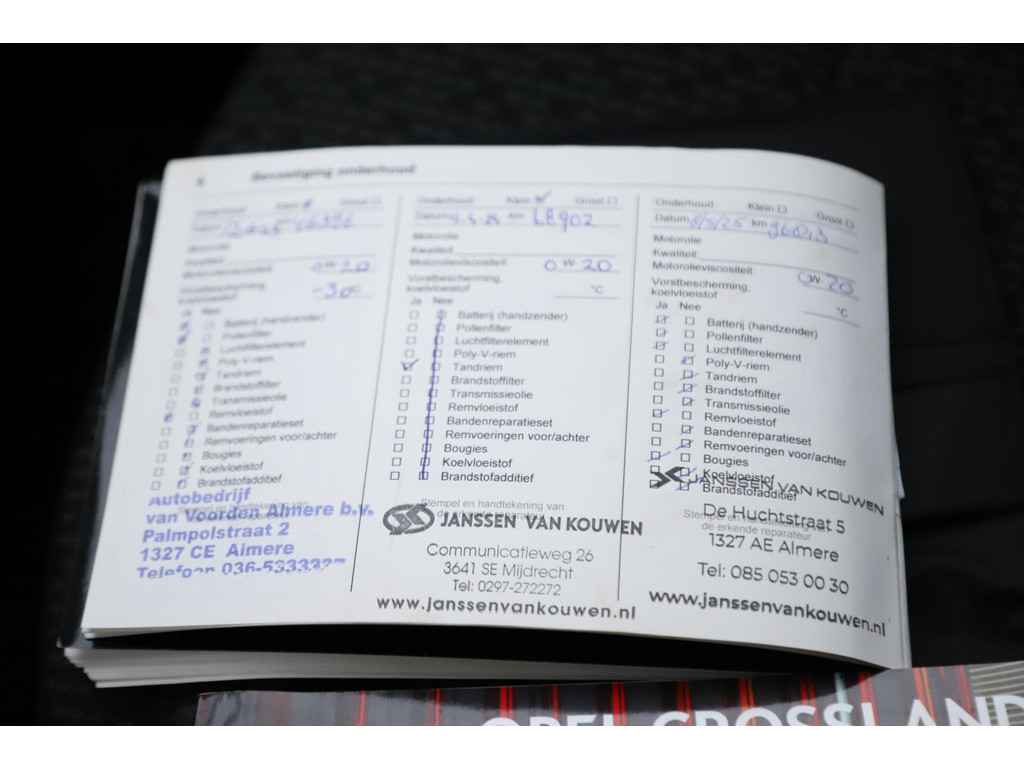 Bevestiging onderhoud
Onderhoud Klein Groot
Motorolie
Kwaliteit
Motorolieviscositeit 0W20
Vorstbescherming,
koelvloeistof -30
Ja Nee
Batterij (handzender)
Pollenfilter
Luchtfilterelement
Poly-V-riem
Tandriem
Brandstoffilter
Transmissieolie
Remvloeistof
Bandenreparatieset
Remvoeringen voor/achter
Bougies
Koelvloeistof
Brandstofadditief
Autobedrijf
van Voorden Almere b.v.
Palmpolstraat 2
1327 CE Almere
Telefoon
Onderhoud Klein Groot
Datum km
Motorolie
Kwaliteit
Motorolieviscositeit 0 W 20
Vorstbescherming,
koelvloeistof °C
Ja Nee
Batterij (handzender)
Pollenfilter
Luchtfilterelement
Poly-V-riem
Tandriem
Brandstoffilter
Transmissieolie
Remvloeistof
Bandenreparatieset
Remvoeringen voor/achter
Bougies
Koelvloeistof
Brandstofadditief
Stempel en handtekening van
JANSSEN VAN KOUWEN
Communicatieweg 26
3641 SE Mijdrecht
Tel: 0297-272272
www.janssenvankouwen.nl
Onderhoud Klein Groot
Datum km
Motorolie
Kwaliteit
Motorolieviscositeit 0W20
Vorstbescherming,
koelvloeistof °C
Ja Nee
Batterij (handzender)
Pollenfilter
Luchtfilterelement
Poly-V-riem
Tandriem
Brandstoffilter
Transmissieolie
Remvloeistof
Bandenreparatieset
Remvoeringen voor/achter
Bougies
Koelvloeistof
Brandstofadditief
JANSSEN VAN KOUWEN
De Huchtstraat 5
Stempel en handtekening van
de erkende reparateur
1327 AE Almere
Tel: 085 053 00 30
www.janssenvankouwen.nl
OPEL CROSSLAND